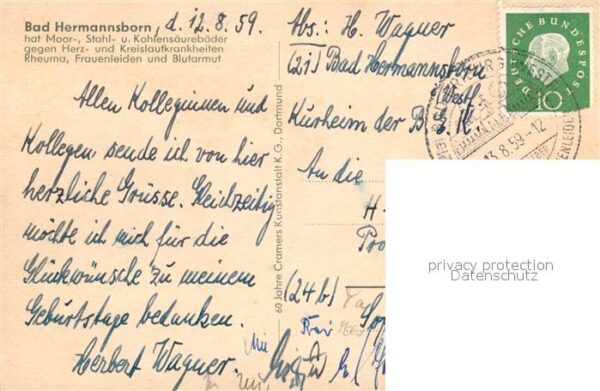 Bad Hermannsborn, d. 12.8.59.
hat Moor-, Stahl- u. Kohlensäurebäder
gegen Herz- und Kreislaufkrankheiten
Rheuma, Frauenleiden und Blutarmut
Allen Kolleginnen und
Kollegen, sende ich von hier
herzliche Grüsse. Gleichzeitig
möchte ich mich für die
Glückwünsche zu meinem
Geburtstage bedanken.
Herbert Wagner.
60 Jahre Cramers Kunstanstalt K.G., Dortmund
Abs: H. Wagner
(21) Bad Hermannsborn
Westf.
Kurheim der B.E.K.
An die
H.
(24b)
DEUTSCHE BUNDESPOST
10
13.8.59-12
privacy protection
Datenschutz